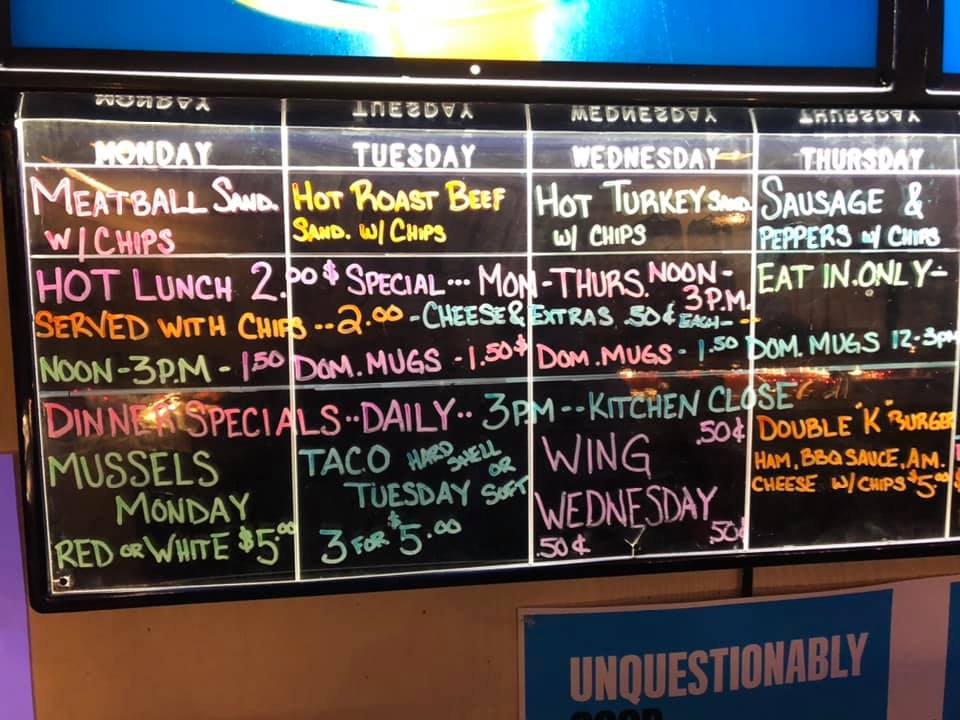 MONDAY TUESDAY WEDNESDAY THURSDAY
MONDAY TUESDAY WEDNESDAY THURSDAY
MEATBALL SAND.
W/ CHIPS
HOT ROAST BEEF
SAND. W/ CHIPS
HOT TURKEY SAND.
W/ CHIPS
SAUSAGE &
PEPPERS W/ CHIPS
HOT LUNCH 2.00$ SPECIAL... MON-THURS. NOON-
3P.M.
EAT IN.ONLY-
SERVED WITH CHIPS --2.00 -CHEESE & EXTRAS .50¢ EACH--
NOON-3P.M - 1.50 DOM. MUGS - 1.50$ DOM. MUGS - 1.50 DOM. MUGS 12-3pm
DINNER SPECIALS..DAILY.. 3PM--KITCHEN CLOSE
MUSSELS
MONDAY
RED OR WHITE $5.00
TACO HARD SHELL
OR
TUESDAY SOFT
3 FOR $5.00
.50¢
WING
WEDNESDAY
.50¢ .50¢
DOUBLE "K" BURGER
HAM, BBQ SAUCE, AM.
CHEESE W/ CHIPS $5.00
UNQUESTIONABLY
GOOD